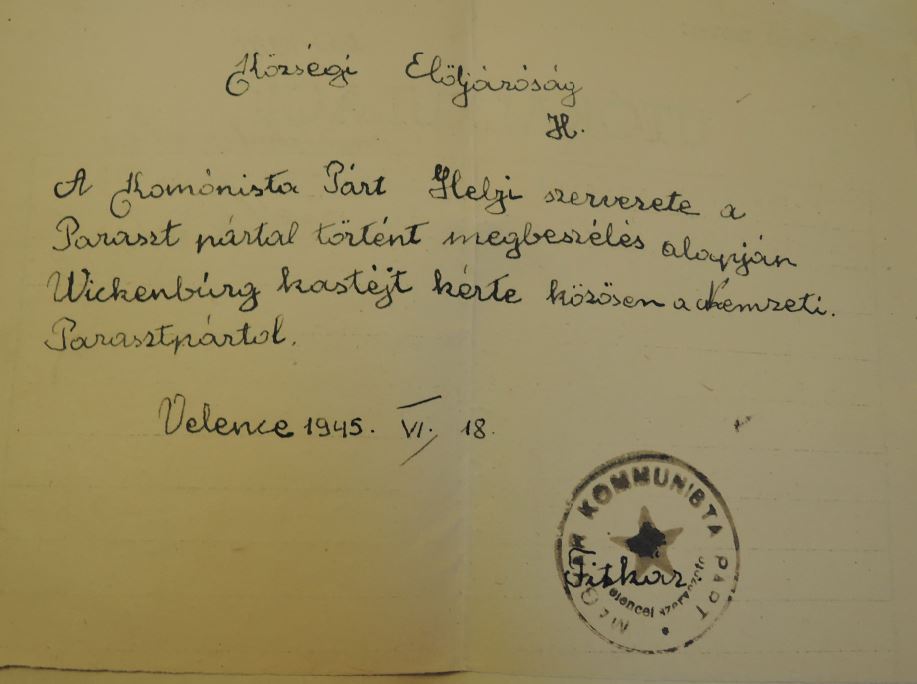 Községi Elöljáróság
H.
A Komónista Párt Helyi szervezete a
Paraszt pártal történt megbeszélés alapján
Wickenbúrg kastéjt kérte közösen a Nemzeti.
Parasztpártol.
Velence 1945. VI. 18.
MAGYAR KOMMUNISTA PÁRT
velencei szervezete
Titkár